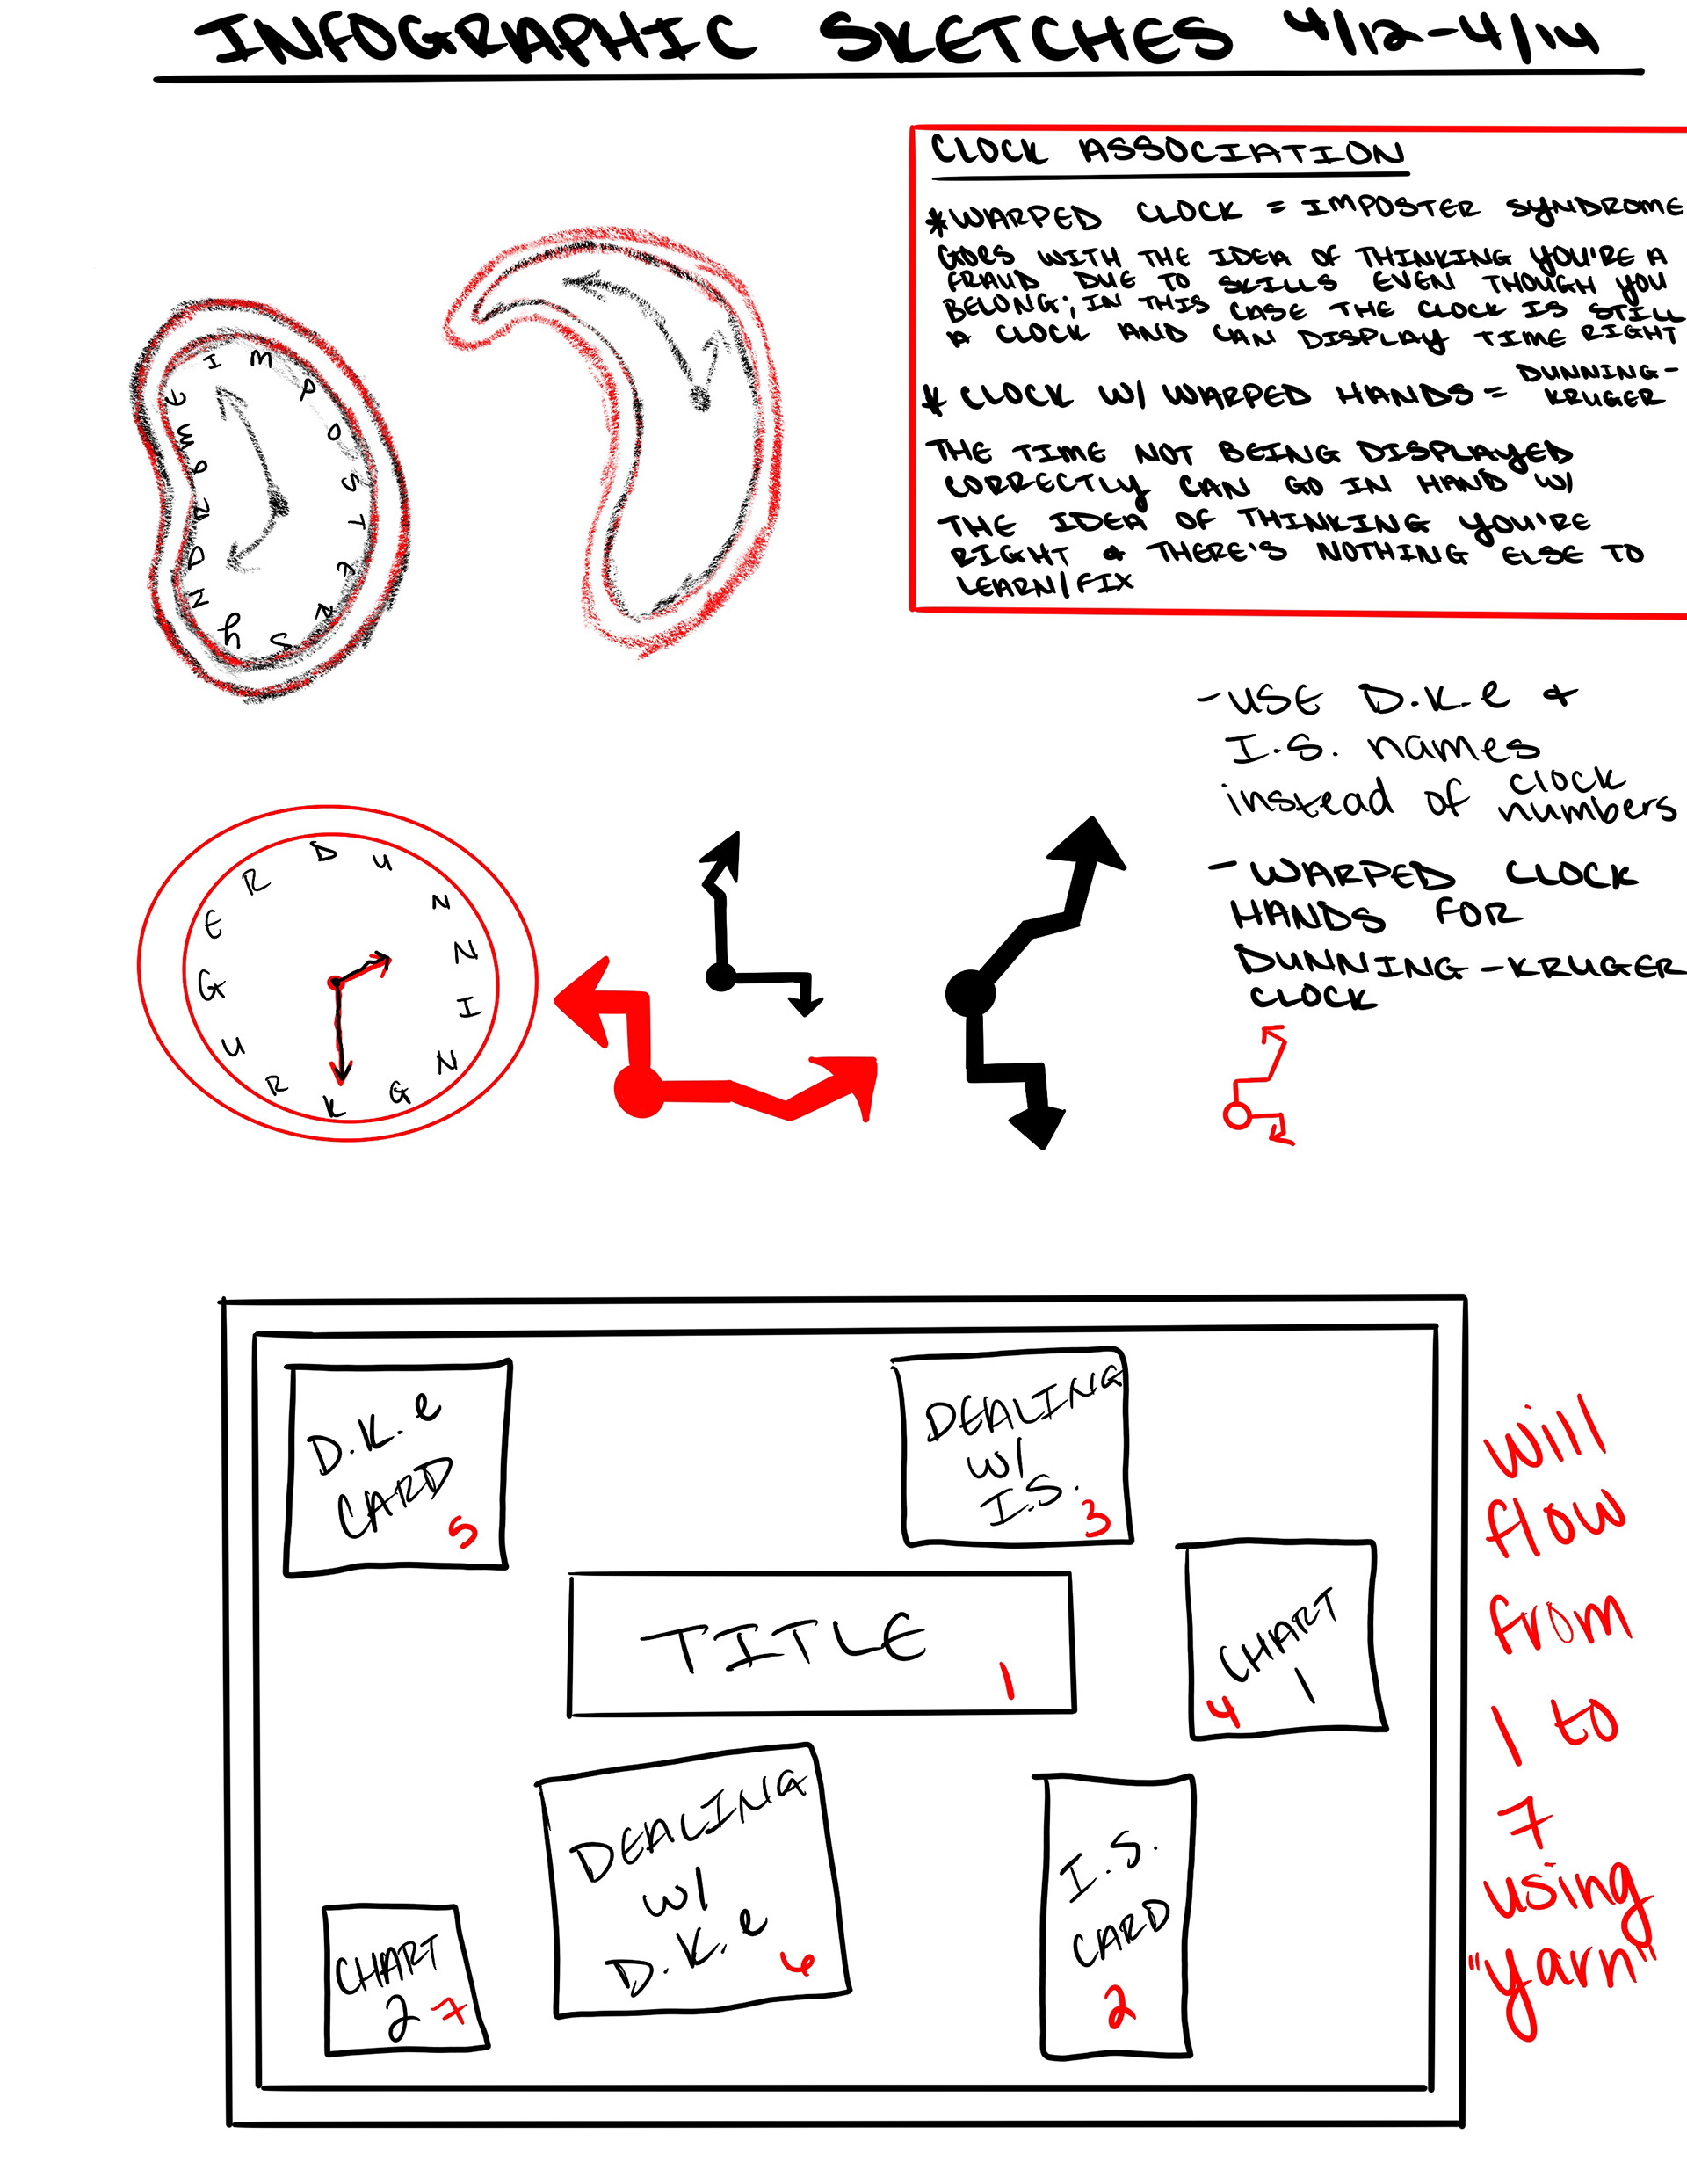 INFOGRAPHIC SKETCHES 4/12-4/14
CLOCK ASSOCIATION
*WARPED CLOCK = IMPOSTER SYNDROME
GOES WITH THE IDEA OF THINKING YOU'RE A
FRAUD DUE TO SKILLS EVEN THOUGH YOU
BELONG; IN THIS CASE THE CLOCK IS STILL
A CLOCK AND CAN DISPLAY TIME RIGHT
* CLOCK W/ WARPED HANDS = DUNNING-
KRUGER
THE TIME NOT BEING DISPLAYED
CORRECTLY CAN GO IN HAND W/
THE IDEA OF THINKING YOU'RE
RIGHT & THERE'S NOTHING ELSE TO
LEARN/FIX
IMPOSTER SYNDROME
-USE D.K.e &
I.S. names
instead of clock
numbers
- WARPED CLOCK
HANDS FOR
DUNNING-KRUGER
CLOCK
DUNNING KRUGER
D.K.e
CARD
5
DEALING
W/
I.S.
3
TITLE
1
CHART
1
4
DEALING
W/
D.K.e
6
I.S.
CARD
2
CHART
2
7
will
flow
from
1 to
7
using
"yarn"